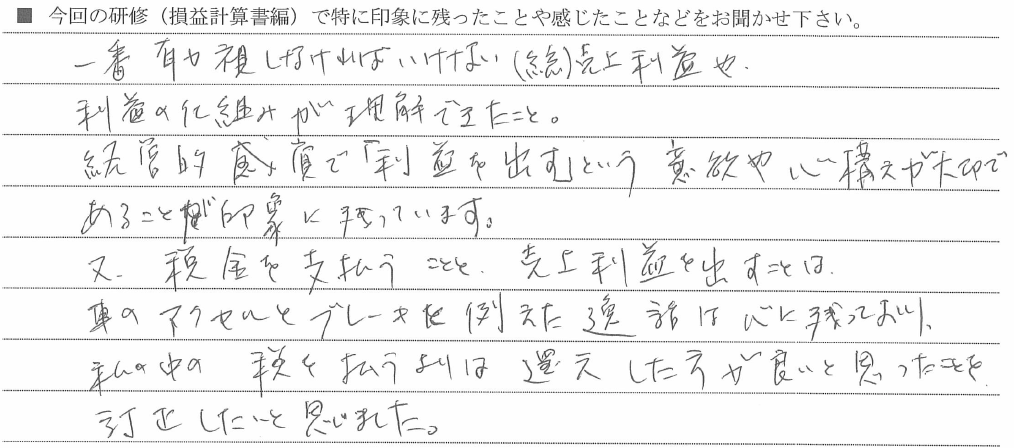 ■ 今回の研修（損益計算書編）で特に印象に残ったことや感じたことなどをお聞かせ下さい。
一番 重視しなければいけない(総)売上利益や
利益の仕組みが理解できたこと。
経営的感覚で「利益を出す」という意欲や心構えが大切で
あることが印象に残っています。
又、税金を支払うことと、売上利益を出すことは、
車のアクセルとブレーキを例えた逸話は心に残っており、
私の中の 税を払うよりは 還元した方が良いと思ったことを
訂正したいと思いました。